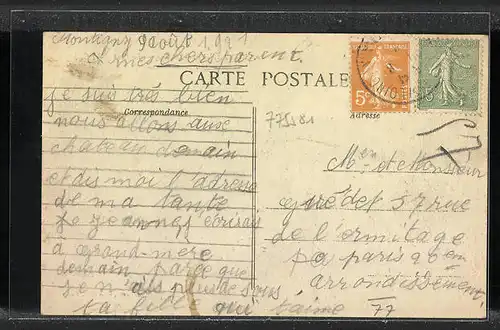 Montigny 9 août 1921
mes chers parent.
CARTE POSTALE
Correspondance
Adresse
775181
je suis très bien
nous allons aux
chateau demain
et dis moi l'adresse
de ma tante
Jeanne j'ecrirais
à grand-mère
demain parce que
je n'ais plus de sous
ta fille qui t'aime
Mme et Monsieur
57 rue
de l'ermitage
paris 20em
arrondissement.
77